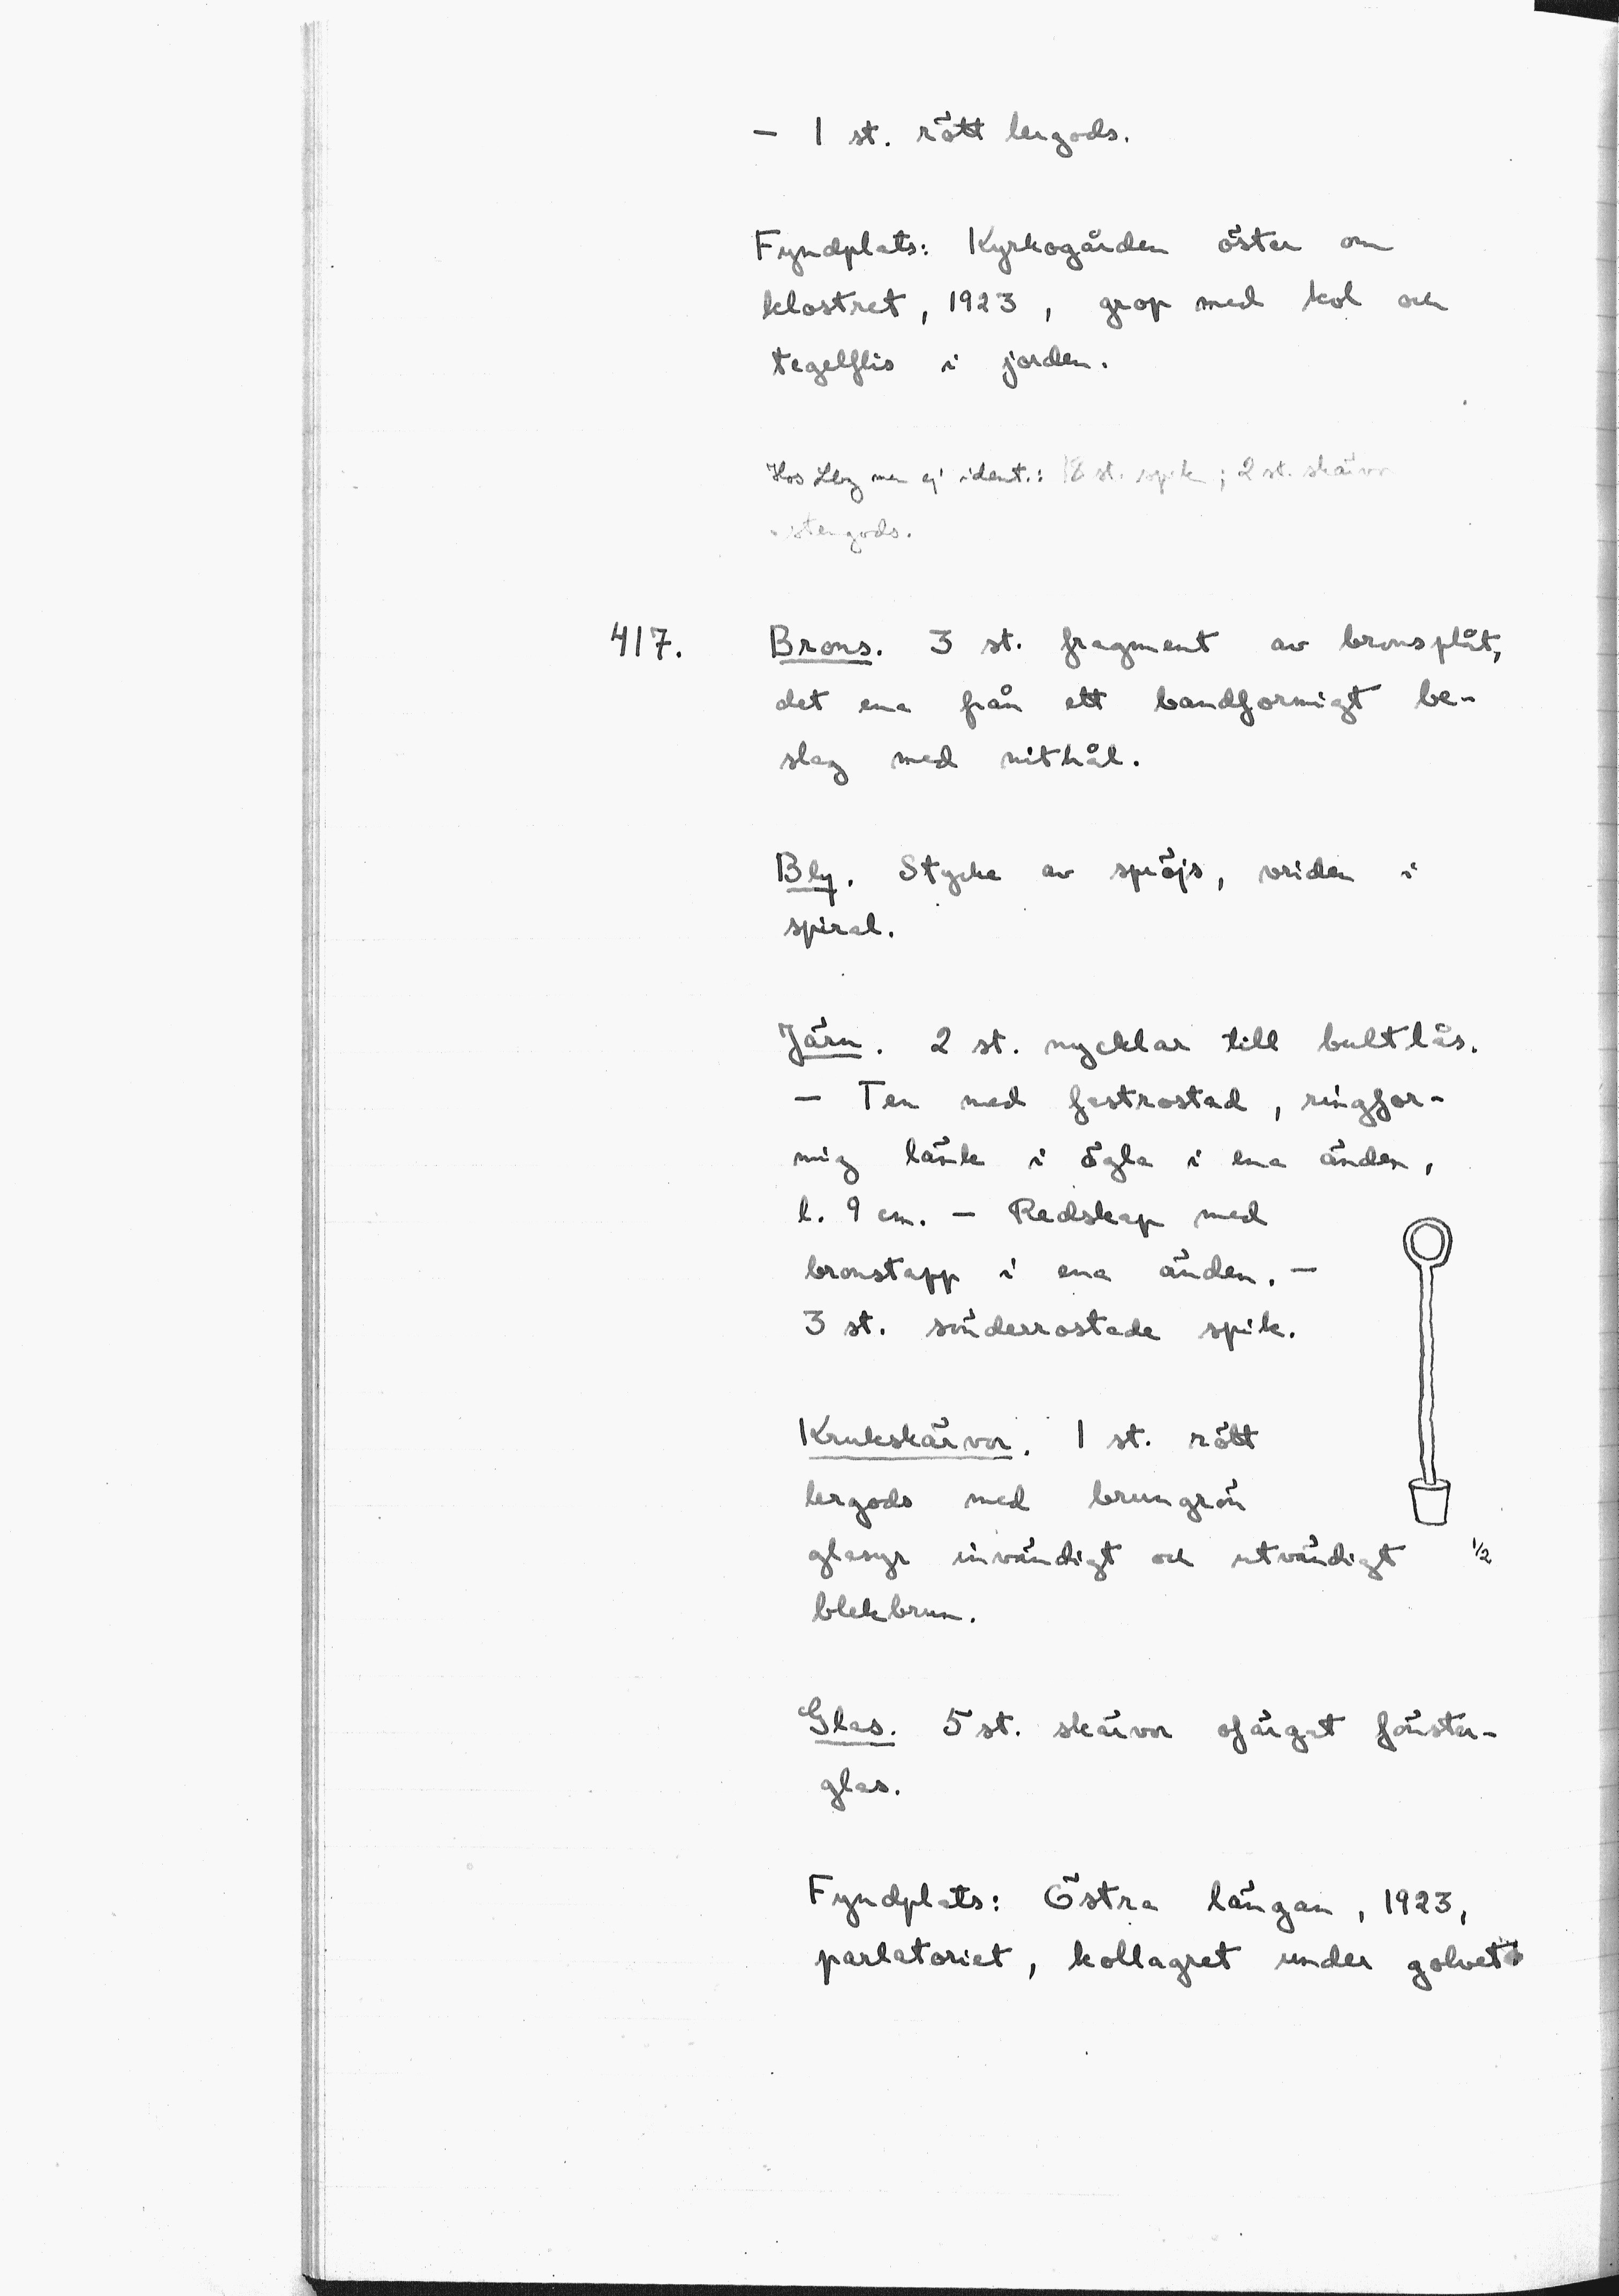 — 1 st. rött lergods.
Fyndplats: Kyrkogården öster om
klostret, 1923, grop med kol och
tegelflis i jorden.
Hos Lbg men ej ident.: st. spik; 2 st. skärvor
stengods.
417. Brons. 3 st. fragment av bronsplåt,
det ena från ett bandformigt be-
slag med nithål.
Bly. Stycke av spröjs, vriden i
spiral.
Järn. 2 st. nycklar till bultlås.
— Ten med fastrostad, ringfor-
mig länk i ögla i ena änden,
l. 9 cm. — Redskap med
bronstapp i ena änden. —
3 st. sönderrostade spik.
Krukskärvor. 1 st. rött
lergods med brungrön
glasyr invändigt och utvändigt
1/2
blekbrun.
Glas. 5 st. skärvor ofärgat fönster-
glas.
Fyndplats: Östra längan, 1923,
parlatoriet, kollagret under golvet